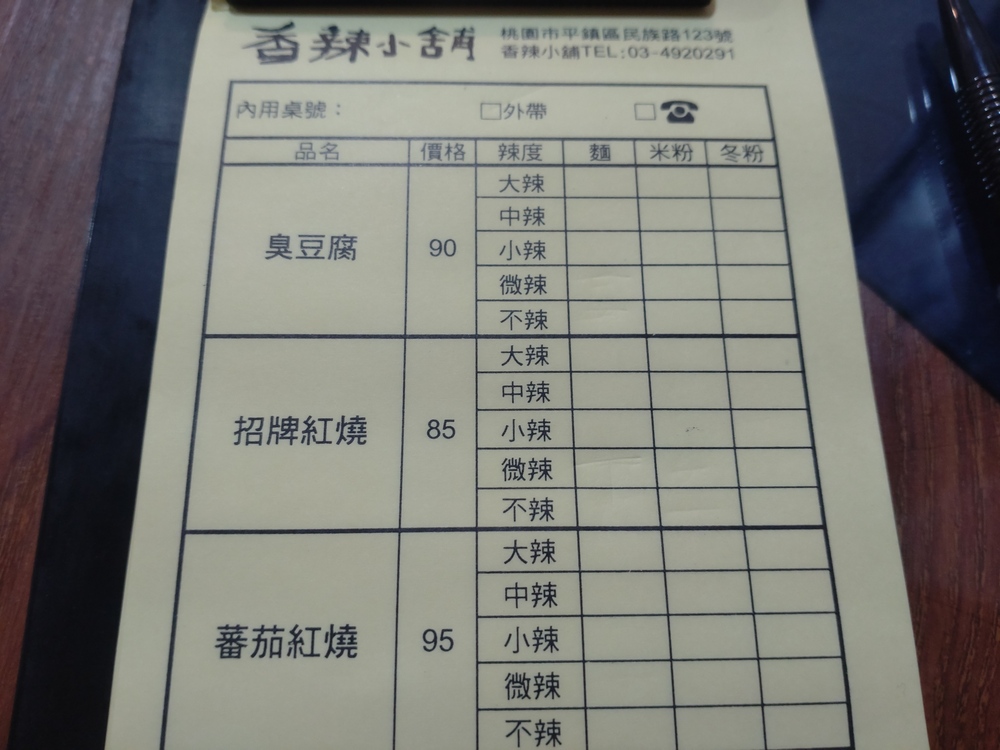 香辣小舖
桃園市平鎮區民族路123號
香辣小舖TEL:03-4920291
內用桌號： □外帶 □☎
品名 價格 辣度 麵 米粉 冬粉
臭豆腐 90
大辣
中辣
小辣
微辣
不辣
招牌紅燒 85
大辣
中辣
小辣
微辣
不辣
蕃茄紅燒 95
大辣
中辣
小辣
微辣
不辣